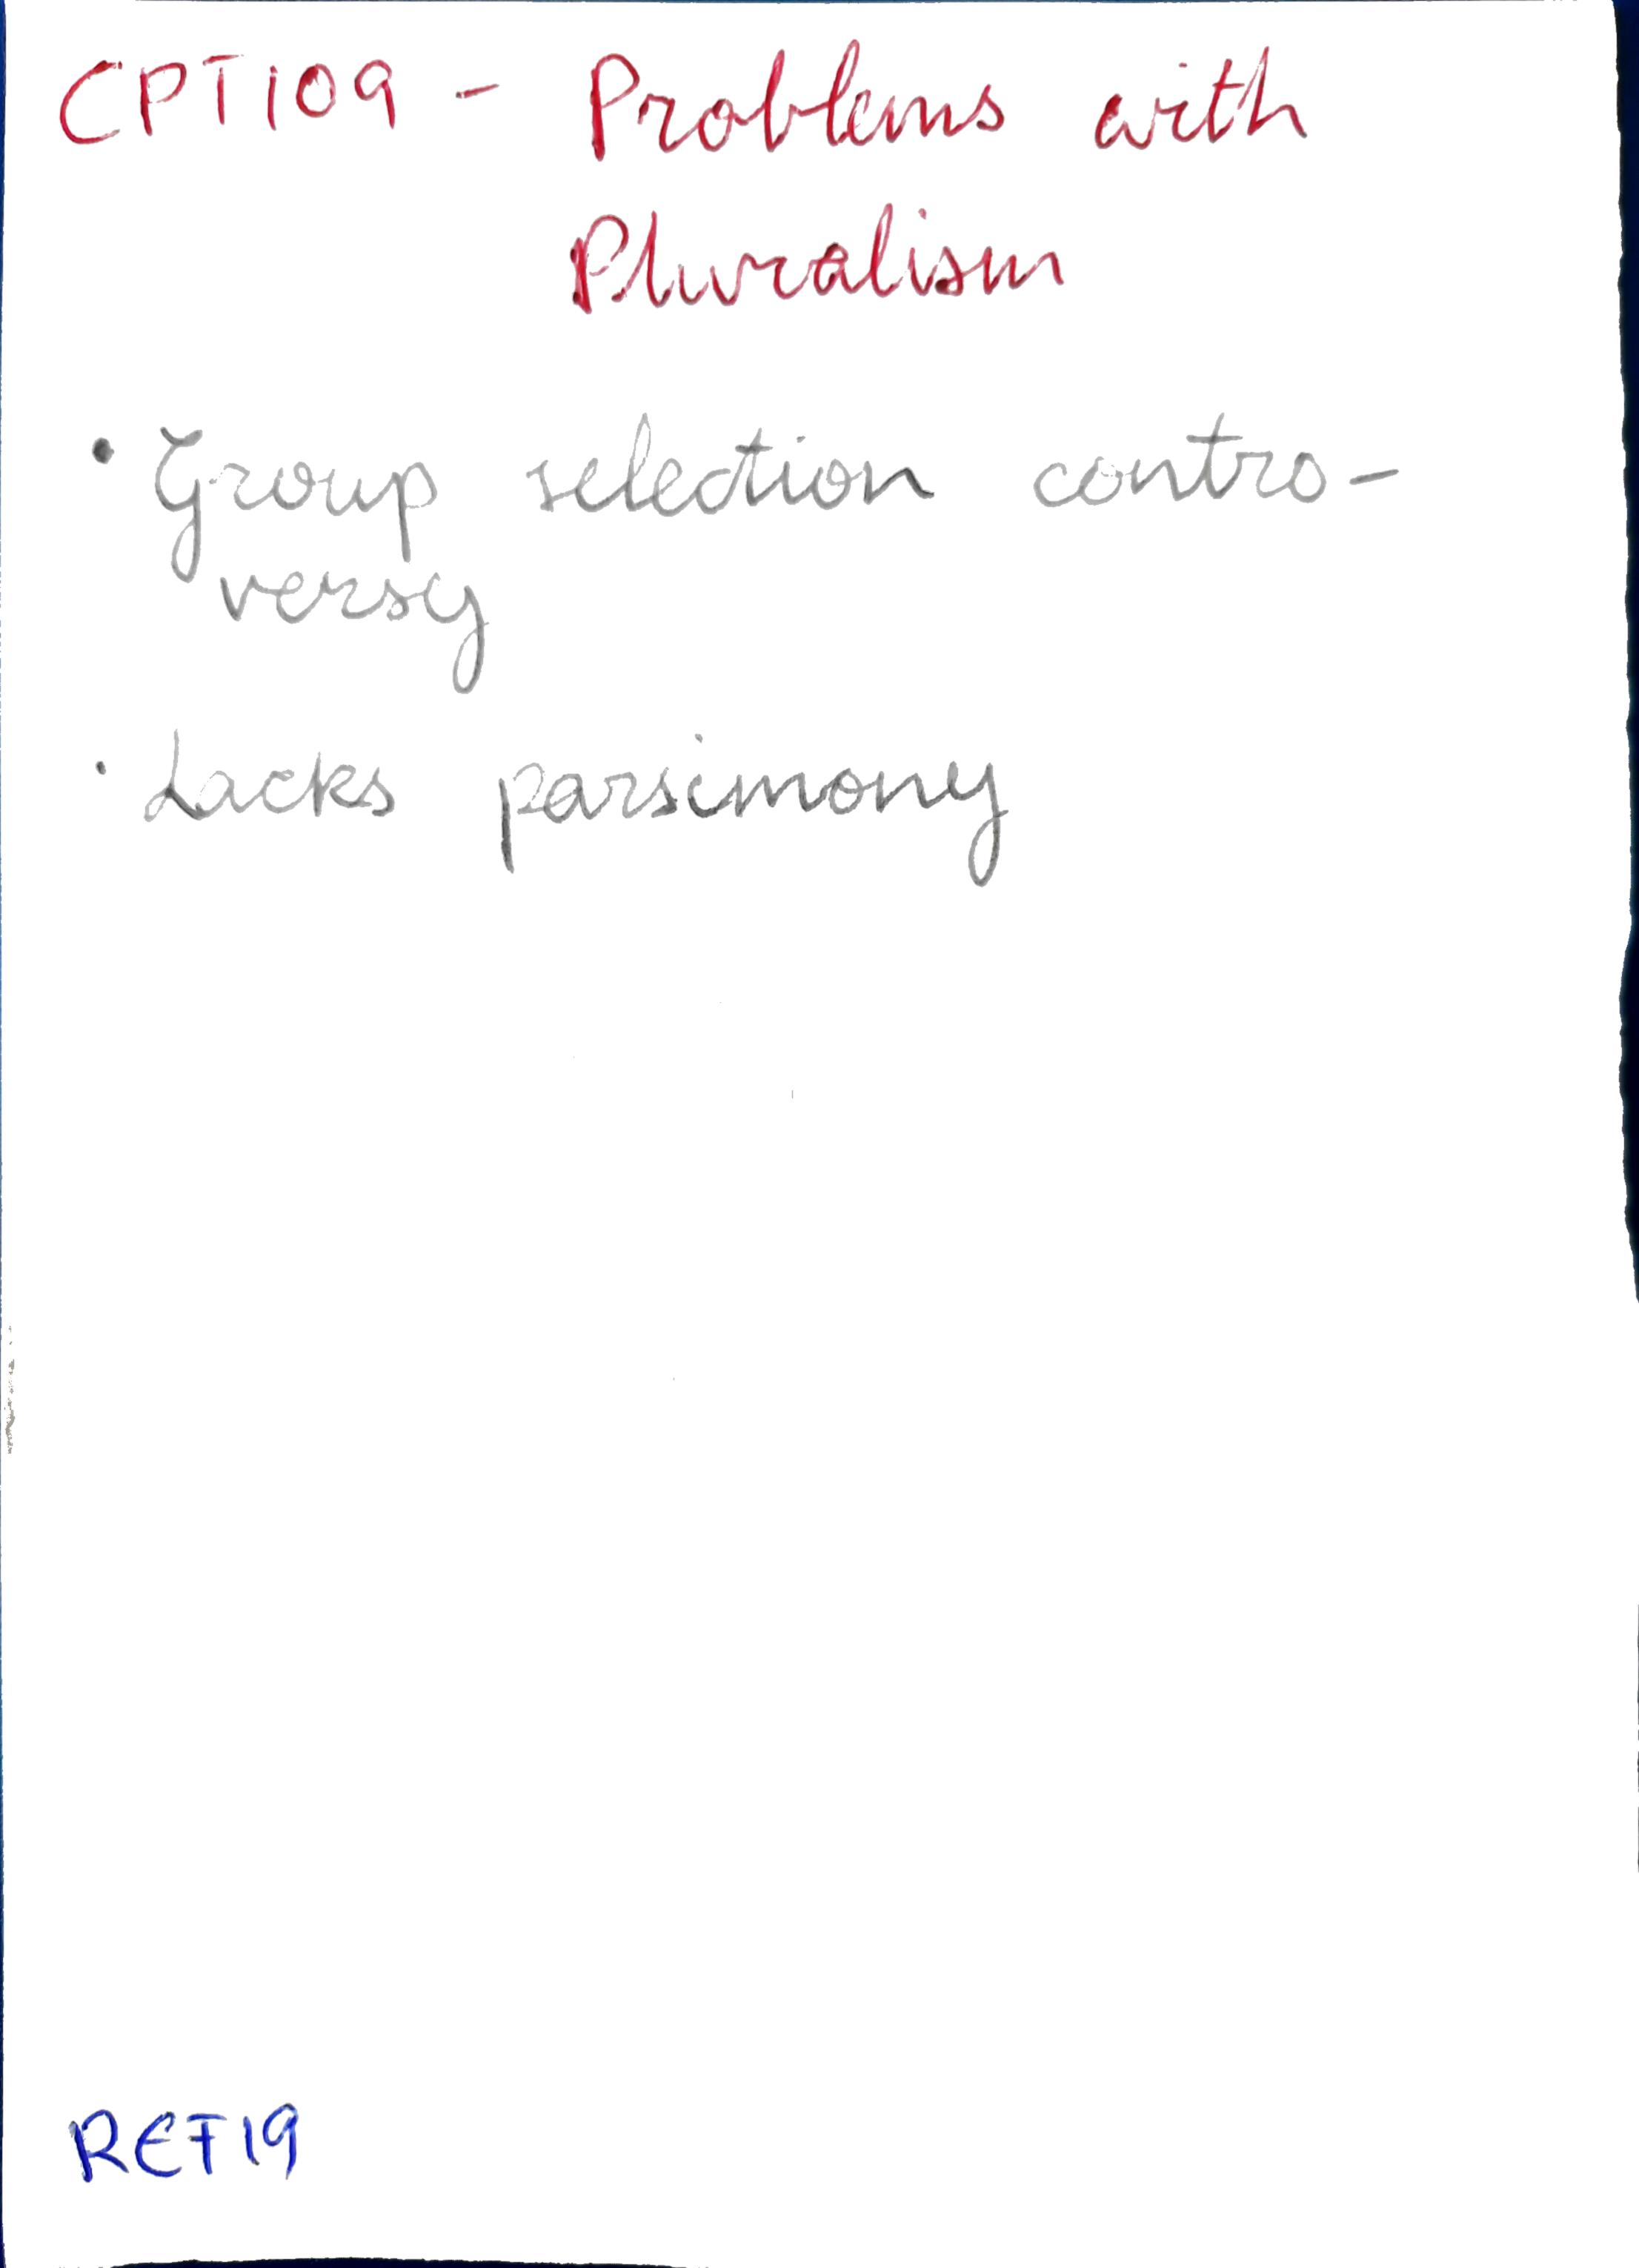 CPT109 - Problems with
Pluralism
• Group selection contro-
versy
• Lacks parsimony
REF19